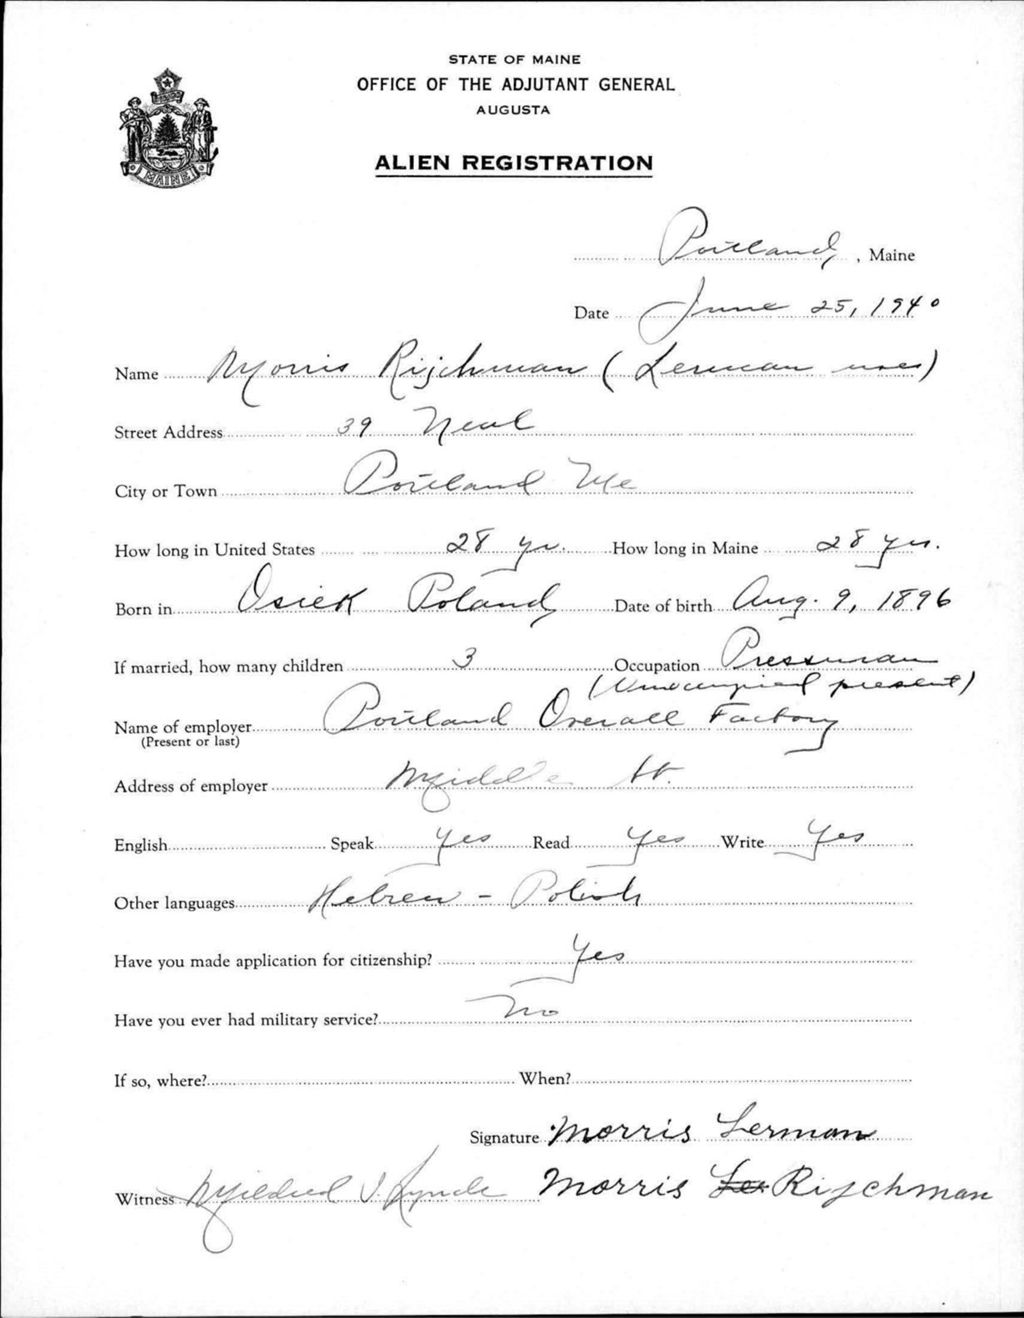 STATE OF MAINE
OFFICE OF THE ADJUTANT GENERAL
AUGUSTA
MAINE
ALIEN REGISTRATION
Portland, Maine
Date June 25, 1940
Name Morris Rijchman (Lerman uses)
Street Address 39 Neal
City or Town Portland Me
How long in United States 28 yr. How long in Maine 28 yrs.
Born in Osiek Poland Date of birth Aug. 9, 1896
If married, how many children 3 Occupation Pressman
(Unoccupied present)
Name of employer Portland Overall Factory
(Present or last)
Address of employer Middle St.
English Speak Yes Read Yes Write Yes
Other languages Hebrew - Polish
Have you made application for citizenship? Yes
Have you ever had military service? No
If so, where? When?
Signature Morris Lerman
Witness Mildred I. Morris Le Rijchman